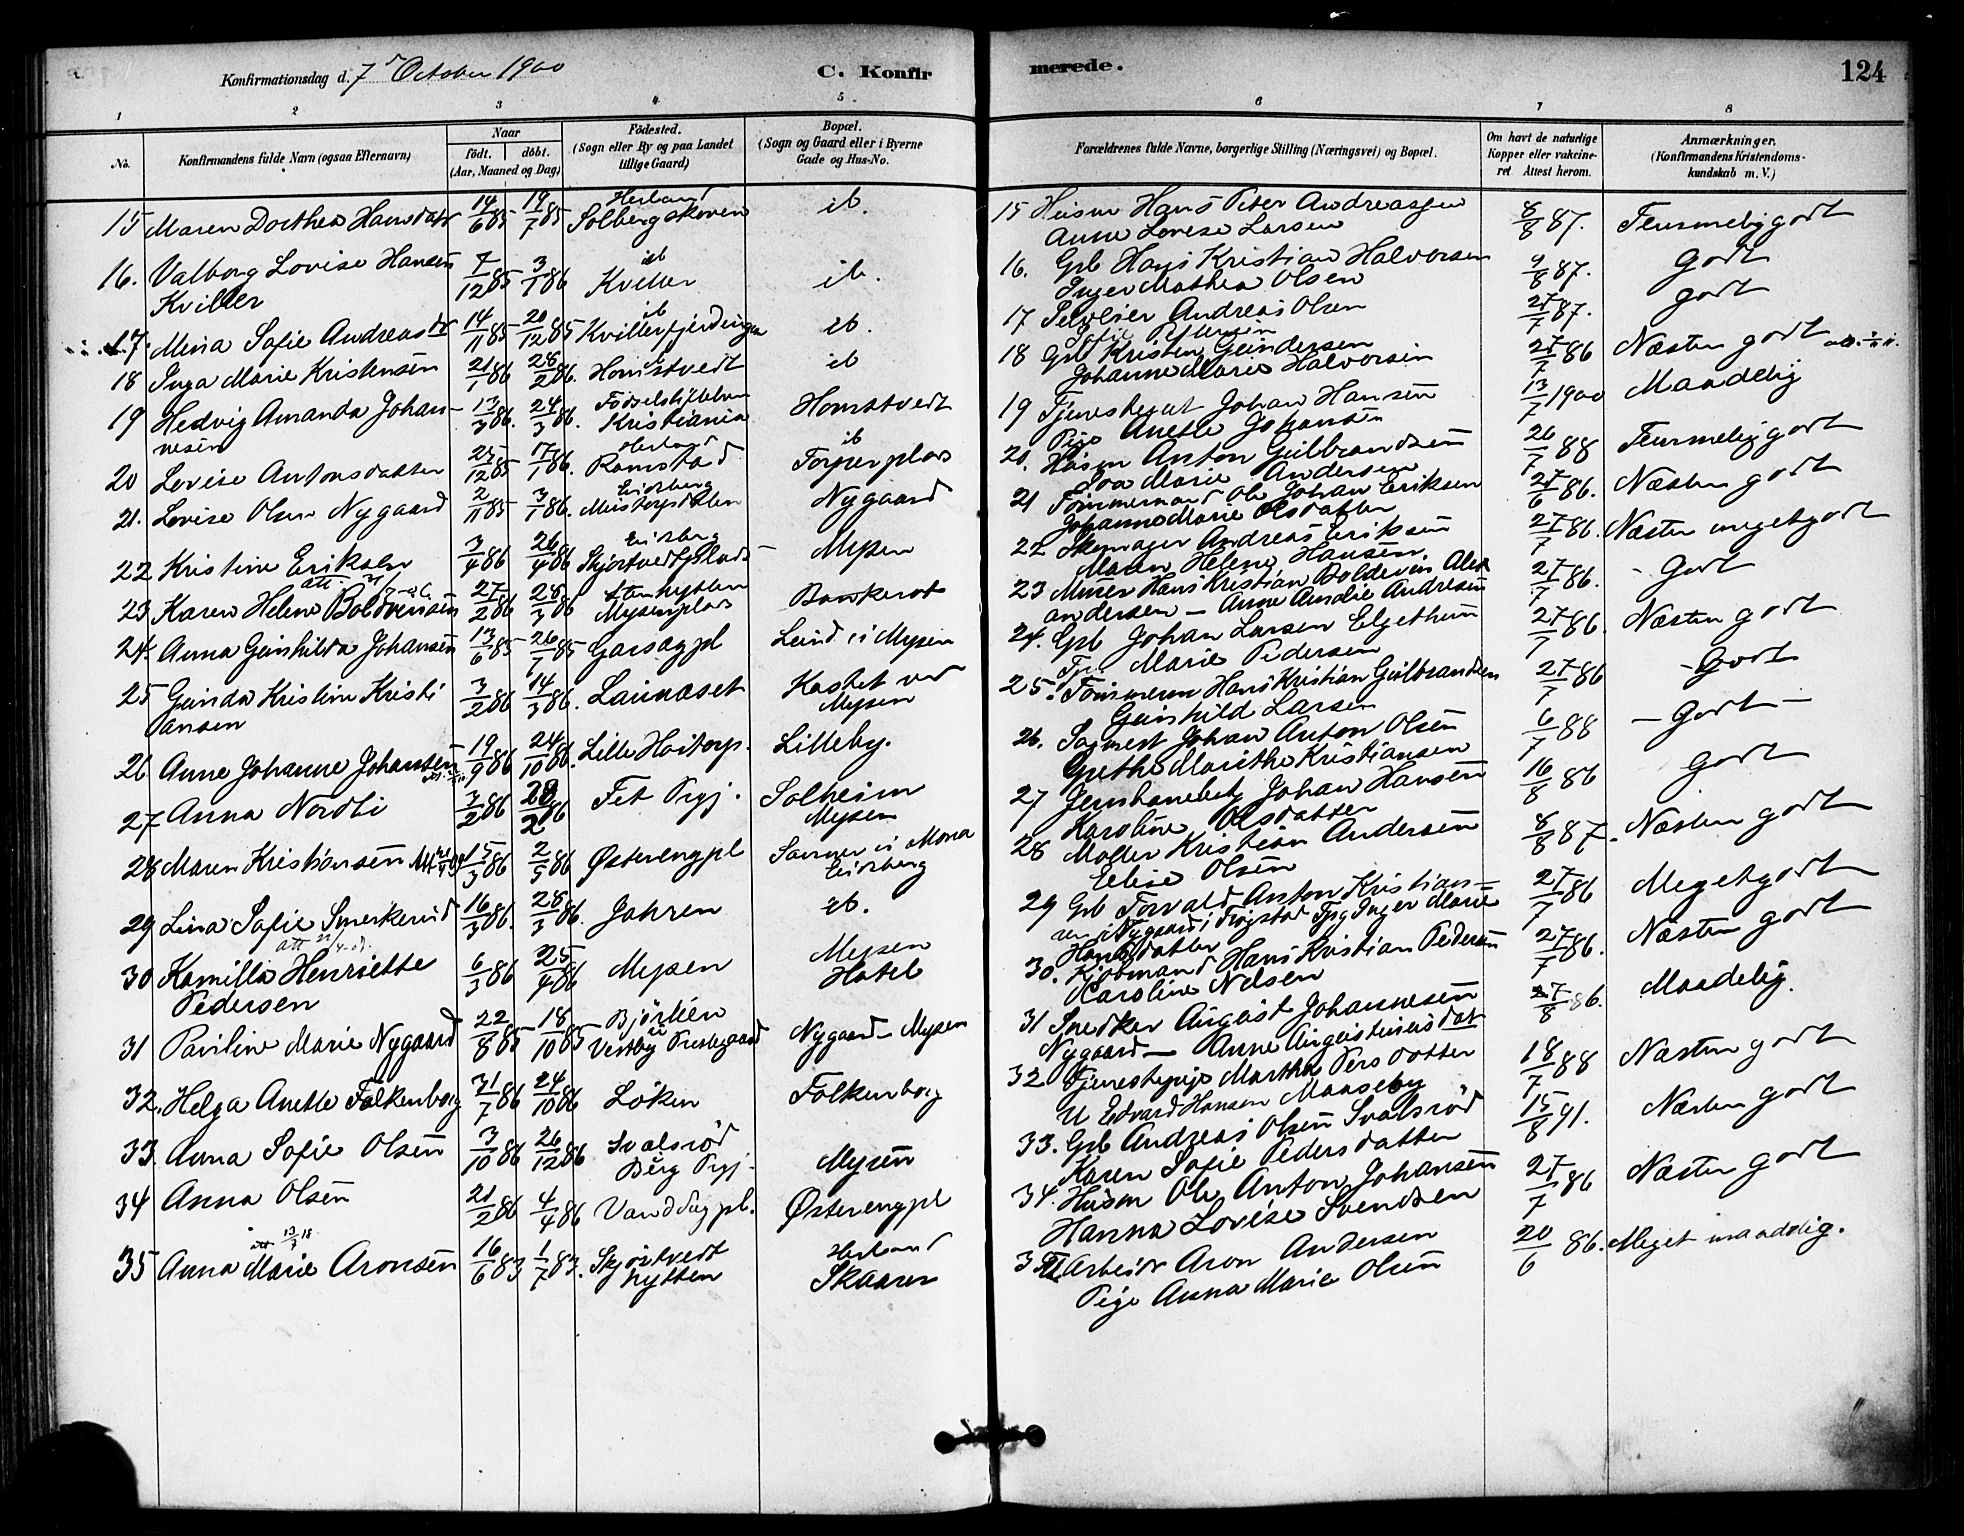 Konfirmationsdag d. 7 October 1900 C. Konfir
merede. 124
1 2 3 4 5
6 7 8
No. Konfirmandens fulde Navn (ogsaa Efternavn)
Naar
födt. döbt.
(Aar, Maaned og Dag)
Födested.
(Sogn eller By og paa Landet
tillige Gaard)
Bopæl.
(Sogn og Gaard eller i Byerne
Gade og Hus-No.
Forældrenes fulde Navne, borgerlige Stilling (Næringsvei) og Bopæl.
Om havt de naturlige
Kopper eller vakcine-
ret. Attest herom.
Anmærkninger.
(Konfirmandens Kristendoms-
kundskab m. V.)
15 Maren Dorthea Hansdatr 14/6 85 19/7 85 Herland
Solbergskoven ib.
15 Husm Hans Peter Andreassen
Anne Lovise Larsen 8/8 87. Temmelig godt
16. Valborg Lovise Hansen
Kviller 7/12 85 3/1 86 ib
Kviller ib.
16. Grb Hans Kristian Halvorsen
Inger Mathea Olsen 9/8 87. godt
17. Mina Sofie Andreasdr 14/11 85 20/12 85 ib
Kvillerfjerdingen ib.
17 Selveier Andreas Olsen
Sofie 27/7 87. godt
18 Inga Marie Kristensen 21/1 86 28/2 86. ib
Homstvedt ib
18 Grb Kristen Gundersen
Johanne Marie Halvorsen 27/7 86 Næsten godt
19 Hedvig Amanda Johan-
nesen 13/3 86. 24/3 86. Födselsstiftelsen
Kristiania Homstvedt
19 Tjenestegut Johan Hansen
Pige Anette Johansen 13/7 1900 Maadelig
20 Lovise Antonsdatter 25/12 85 17/1 86. Herland
Ramstad ib
Torperplads
20. Husm Anton Gulbrandsen
Marie Andersen 26/7 88 Temmelig godt
21. Lovise Olsen Nygaard 2/11 85 3/1 86. Eidsberg
Nygaard
21 Tömmermand Ole Johan Eriksen
Johanne Marie Olsdatter 27/6 86. Næsten godt
22 Kristine Eriksen 3/4 86 26/4 86 Eidsberg
Skjörtvedtplads Mysen
22 Skomager Andreas Eriksen
Maren Helene Hansen 27/7 86. Næsten meget godt
23 Karen Helene Boldvensen 27/2 86 28/3 86 Stenhytten
Mysenplads Bankerot
23 Murer Hans Kristian Boldevin Alex
andersen - Anne Amalie Andresen 27/7 86. - Godt
24. Anna Gunhilda Johansen 13/6 85 26/7 85 Garsegpl Lund i Mysen
24. Grb Johan Larsen Elgethun
Marie Pedersen 27/7 86. Næsten godt
25 Gunda Kristine Kristi
ansen 3/2 86 14/3 86. Launæset Kastet ved
Mysen
25. Tömmerm Hans Kristian Gulbrandsen
Gunhild Larsen 27/7 86 - Godt
26 Anne Johanne Johansen 19/9 86 24/10 86. Lille Haitorp. Lilleby.
26. Sagmest Johan Anton Olsen
Grethe Marethe Kristiansen 6/7 88 - Godt -
27 Anna Nordli 3/2 86 28/2 86 Fet Prgj. Solheim
Mysen
27 Jernbanebet Johan Hansen
Karoline Olsdatter 16/8 86 godt
28 Maren Kristiansen 15/3 86 2/5 86 Østerengpl Sanner i Mona
Eidsberg
28 Moller Kristian Andersen
Elise Olsen 8/8 87. Næsten godt
29 Lina Sofie Smerkerud 16/3 86. 28/3 86. Jahren ib.
29 Grb Torvald Anton Kristian-
sen i Nygaard i Trögstad Tpg Inger Marie
Hansdatter 27/7 86 Meget godt
30 Kamilla Henriette
Pedersen 6/3 86 25/4 86 Mysen Mysen
Hotel
30. Kjöbmand Hans Kristian Pedersen
Karoline Nilsen 27/7 86. Næsten godt
31 Pauline Marie Nygaard 22/8 85 18/10 85 Björlien
Vestby Prestegaard Nygaard - Mysen
31 Snedker August Johannesen
Nygaard - Anne Augustinusdat 27/8 86. Maadelig.
32. Helga Anette Falkenborg 31/7 86 24/10 86 Löken Falkenborg
32 Tjenestepige Martha Persdatter
U Edvard Hansen Maaseby 18/7 88 Næsten godt
33. Anna Sofie Olsen 3/10 86 26/12 86 Svalsröd
Berg Prgj. Mysen
33. Grb Andreas Olsen Svalsröd
Karen Sofie Pedersdatter 15/8 91. Næsten godt
34 Anna Olsen 21/2 86 4/4 86 Vanddugpl. Østerengpl
34. Husm Ole Anton Johansen
Hanna Lovise Svendsen 27/7 86 Næsten godt
35 Anna Marie Aronsen 16/6 83 1/7 83. Skjörtvedt
hytten Herland
Skaaren
35 Arbeidr Aron Andersen
Pige Anna Marie Olsen 20/6 86. Meget maadelig.